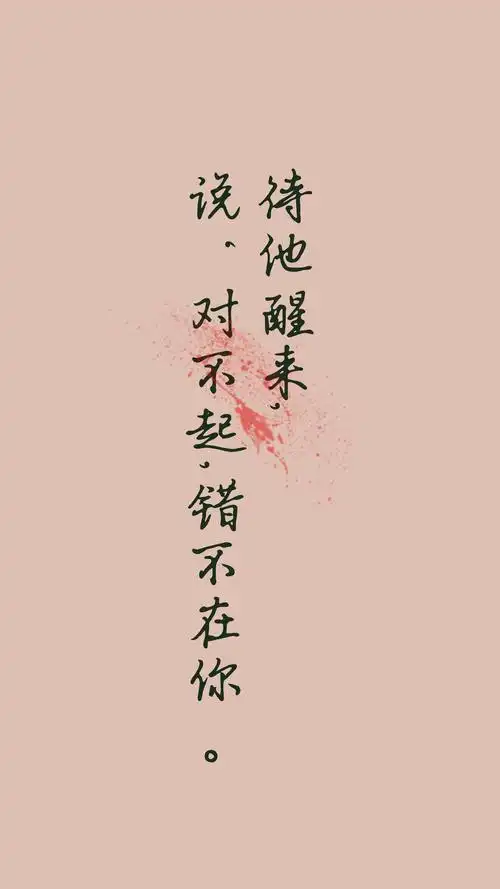 待他醒来，
说。对不起，错不在你。